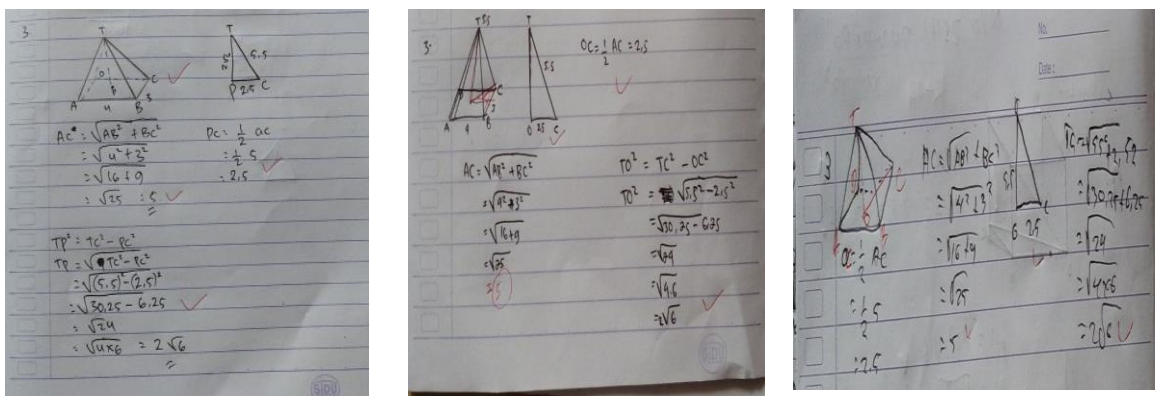 3.
T
5.5
A
4
B
3
C
P 2.5 C
AC² = √AB² + BC²
= √4² + 3²
= √16 + 9
= √25 = 5
PC = 1/2 ac
= 1/2 5
= 2,5
TP² = TC² - PC²
TP = √TC² - PC²
= √(5,5)² - (2,5)²
= √30,25 - 6,25
= √24
= √4x6 = 2√6
SIDU
3.
T 5.5
T
5.5
A
4
B
3
C
O 2.5 C
OC = 1/2 AC = 2,5
AC = √AB² + BC²
= √4² + 3²
= √16+9
= √25
= 5
TO² = TC² - OC²
TO² = √5,5² - 2,5²
= √30,25 - 6,25
= √24
= √4.6
= 2√6
SIDU
No.
Date :
3
T
5.5
AC = √AB² + BC²
= √4² + 3²
= √16 + 9
= √25
= 5
OC = 1/2 AC
= 1/2 5
= 2,5
= √24
= √4x6
= 2√6